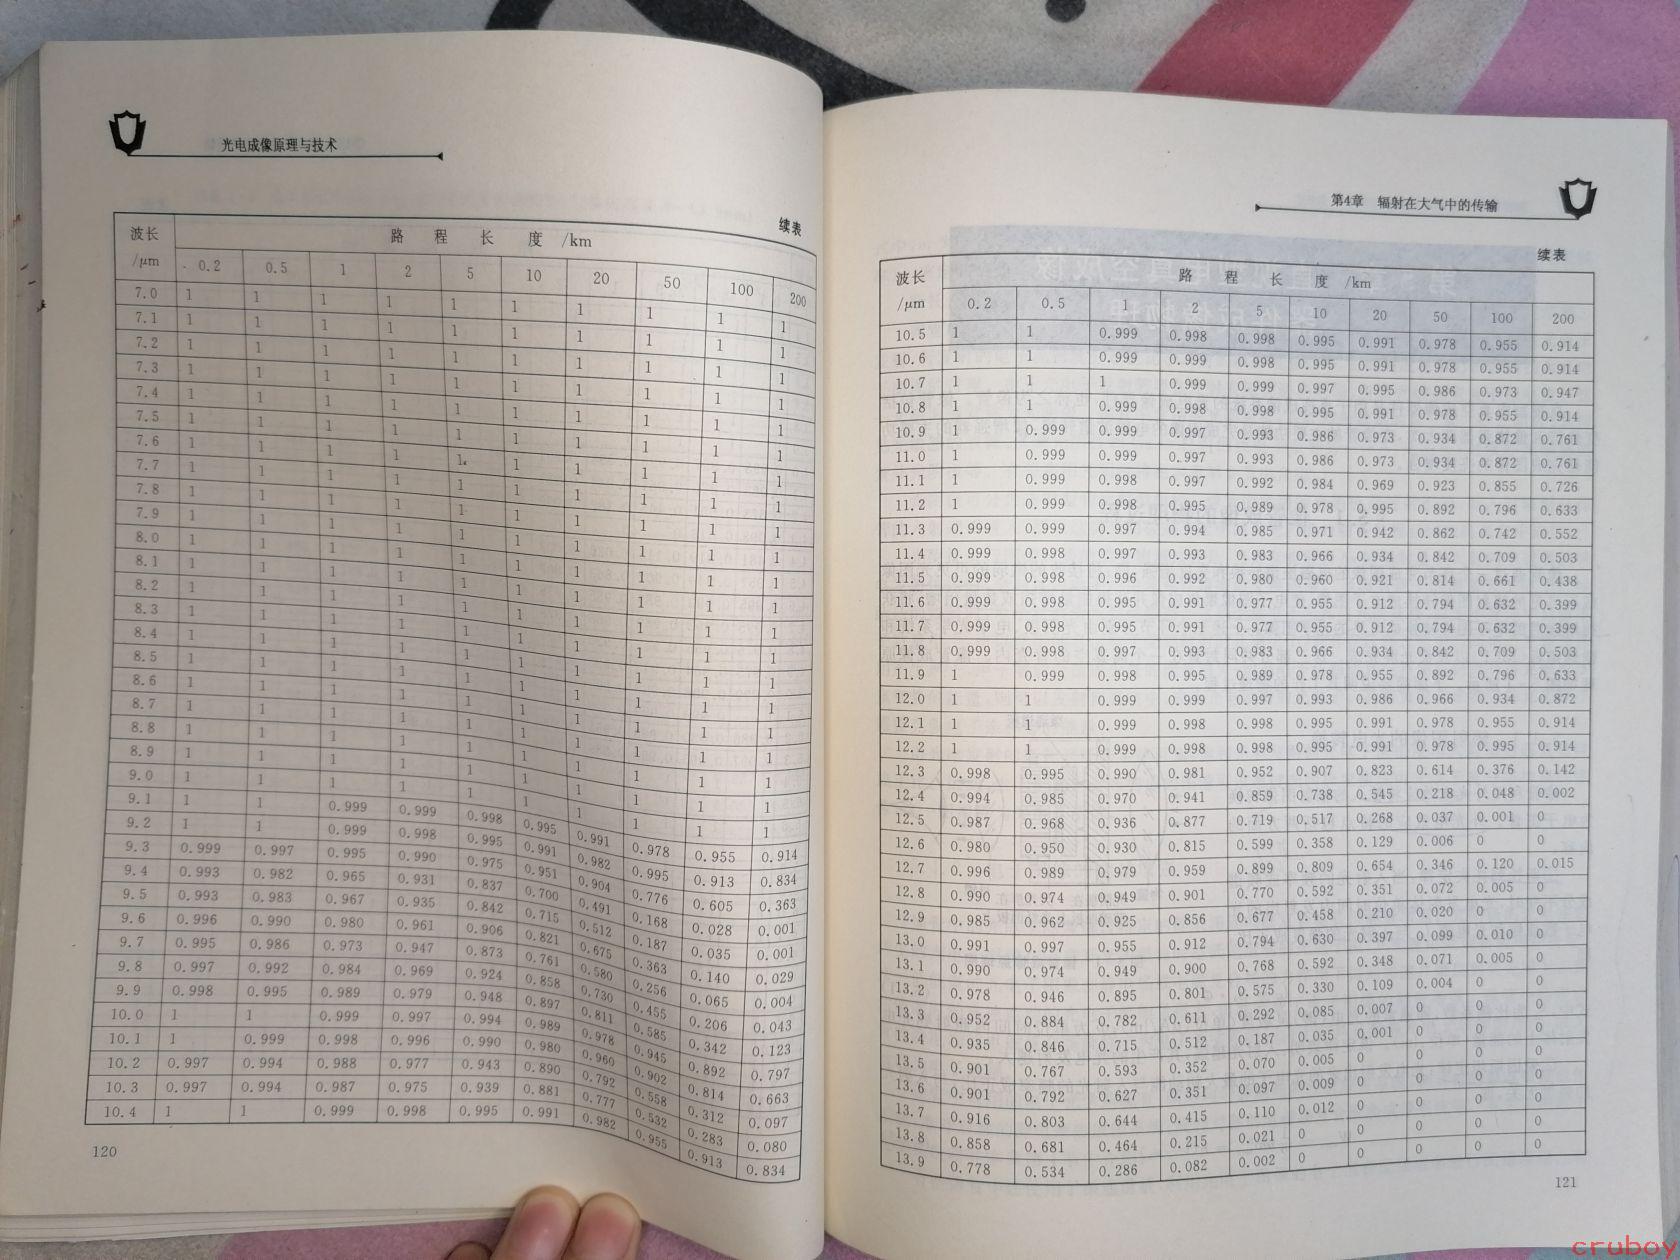 光电成像原理与技术
续表
波长/μm 路程长度/km
0.2 0.5 1 2 5 10 20 50 100 200
7.0 1 1 1 1 1 1 1 1 1 1
7.1 1 1 1 1 1 1 1 1 1 1
7.2 1 1 1 1 1 1 1 1 1 1
7.3 1 1 1 1 1 1 1 1 1 1
7.4 1 1 1 1 1 1 1 1 1 1
7.5 1 1 1 1 1 1 1 1 1 1
7.6 1 1 1 1 1 1 1 1 1 1
7.7 1 1 1 1 1 1 1 1 1 1
7.8 1 1 1 1 1 1 1 1 1 1
7.9 1 1 1 1 1 1 1 1 1 1
8.0 1 1 1 1 1 1 1 1 1 1
8.1 1 1 1 1 1 1 1 1 1 1
8.2 1 1 1 1 1 1 1 1 1 1
8.3 1 1 1 1 1 1 1 1 1 1
8.4 1 1 1 1 1 1 1 1 1 1
8.5 1 1 1 1 1 1 1 1 1 1
8.6 1 1 1 1 1 1 1 1 1 1
8.7 1 1 1 1 1 1 1 1 1 1
8.8 1 1 1 1 1 1 1 1 1 1
8.9 1 1 1 1 1 1 1 1 1 1
9.0 1 1 1 1 1 1 1 1 1 1
9.1 1 1 0.999 0.999 0.998 0.995 0.991 0.978 0.955 0.914
9.2 1 1 0.999 0.998 0.995 0.991 0.982 0.995 0.913 0.834
9.3 0.999 0.997 0.995 0.990 0.975 0.951 0.904 0.776 0.605 0.363
9.4 0.993 0.982 0.965 0.931 0.837 0.700 0.491 0.168 0.028 0.001
9.5 0.993 0.983 0.967 0.935 0.842 0.715 0.512 0.187 0.035 0.001
9.6 0.996 0.990 0.980 0.961 0.906 0.821 0.675 0.363 0.140 0.029
9.7 0.995 0.986 0.973 0.947 0.873 0.761 0.580 0.256 0.065 0.004
9.8 0.997 0.992 0.984 0.969 0.924 0.858 0.730 0.455 0.206 0.043
9.9 0.998 0.995 0.989 0.979 0.948 0.897 0.811 0.585 0.342 0.123
10.0 1 1 0.999 0.997 0.994 0.989 0.978 0.945 0.892 0.797
10.1 1 0.999 0.998 0.996 0.990 0.980 0.960 0.902 0.814 0.663
10.2 0.997 0.994 0.988 0.977 0.943 0.890 0.792 0.558 0.312 0.097
10.3 0.997 0.994 0.987 0.975 0.939 0.881 0.777 0.532 0.283 0.080
10.4 1 1 0.999 0.998 0.995 0.991 0.982 0.955 0.913 0.834
120
第4章 辐射在大气中的传输
续表
波长/μm 路程长度/km
0.2 0.5 1 2 5 10 20 50 100 200
10.5 1 1 0.999 0.998 0.998 0.995 0.991 0.978 0.955 0.914
10.6 1 1 0.999 0.999 0.998 0.995 0.991 0.978 0.955 0.914
10.7 1 1 1 0.999 0.999 0.997 0.995 0.986 0.973 0.947
10.8 1 1 0.999 0.998 0.998 0.995 0.991 0.978 0.955 0.914
10.9 1 0.999 0.999 0.997 0.993 0.986 0.973 0.934 0.872 0.761
11.0 1 0.999 0.999 0.997 0.993 0.986 0.973 0.934 0.872 0.761
11.1 1 0.999 0.998 0.997 0.992 0.984 0.969 0.923 0.855 0.726
11.2 1 0.999 0.998 0.995 0.989 0.978 0.995 0.892 0.796 0.633
11.3 0.999 0.999 0.997 0.994 0.985 0.971 0.942 0.862 0.742 0.552
11.4 0.999 0.998 0.997 0.993 0.983 0.966 0.934 0.842 0.709 0.503
11.5 0.999 0.998 0.996 0.992 0.980 0.960 0.921 0.814 0.661 0.438
11.6 0.999 0.998 0.995 0.991 0.977 0.955 0.912 0.794 0.632 0.399
11.7 0.999 0.998 0.995 0.991 0.977 0.955 0.912 0.794 0.632 0.399
11.8 0.999 0.998 0.997 0.993 0.983 0.966 0.934 0.842 0.709 0.503
11.9 1 0.999 0.998 0.995 0.989 0.978 0.955 0.892 0.796 0.633
12.0 1 1 0.999 0.999 0.997 0.993 0.986 0.966 0.934 0.872
12.1 1 1 0.999 0.998 0.998 0.995 0.991 0.978 0.955 0.914
12.2 1 1 0.999 0.998 0.998 0.995 0.991 0.978 0.995 0.914
12.3 0.998 0.995 0.990 0.981 0.952 0.907 0.823 0.614 0.376 0.142
12.4 0.994 0.985 0.970 0.941 0.859 0.738 0.545 0.218 0.048 0.002
12.5 0.987 0.968 0.936 0.877 0.719 0.517 0.268 0.037 0.001 0
12.6 0.980 0.950 0.930 0.815 0.599 0.358 0.129 0.006 0 0
12.7 0.996 0.989 0.979 0.959 0.899 0.809 0.654 0.346 0.120 0.015
12.8 0.990 0.974 0.949 0.901 0.770 0.592 0.351 0.072 0.005 0
12.9 0.985 0.962 0.925 0.856 0.677 0.458 0.210 0.020 0 0
13.0 0.991 0.997 0.955 0.912 0.794 0.630 0.397 0.099 0.010 0
13.1 0.990 0.974 0.949 0.900 0.768 0.592 0.348 0.071 0.005 0
13.2 0.978 0.946 0.895 0.801 0.575 0.330 0.109 0.004 0 0
13.3 0.952 0.884 0.782 0.611 0.292 0.085 0.007 0 0 0
13.4 0.935 0.846 0.715 0.512 0.187 0.035 0.001 0 0 0
13.5 0.901 0.767 0.593 0.352 0.070 0.005 0 0 0 0
13.6 0.901 0.792 0.627 0.351 0.097 0.009 0 0 0 0
13.7 0.916 0.803 0.644 0.415 0.110 0.012 0 0 0 0
13.8 0.858 0.681 0.464 0.215 0.021 0 0 0 0 0
13.9 0.778 0.534 0.286 0.082 0.002 0 0 0 0 0
121
cruboy